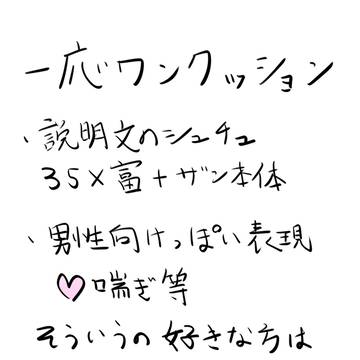 一応ワンクッション
、説明文のシュチュ
35×富+ザン本体
、男性向けっぽい表現
♡喘ぎ等
そういうの好きな方は